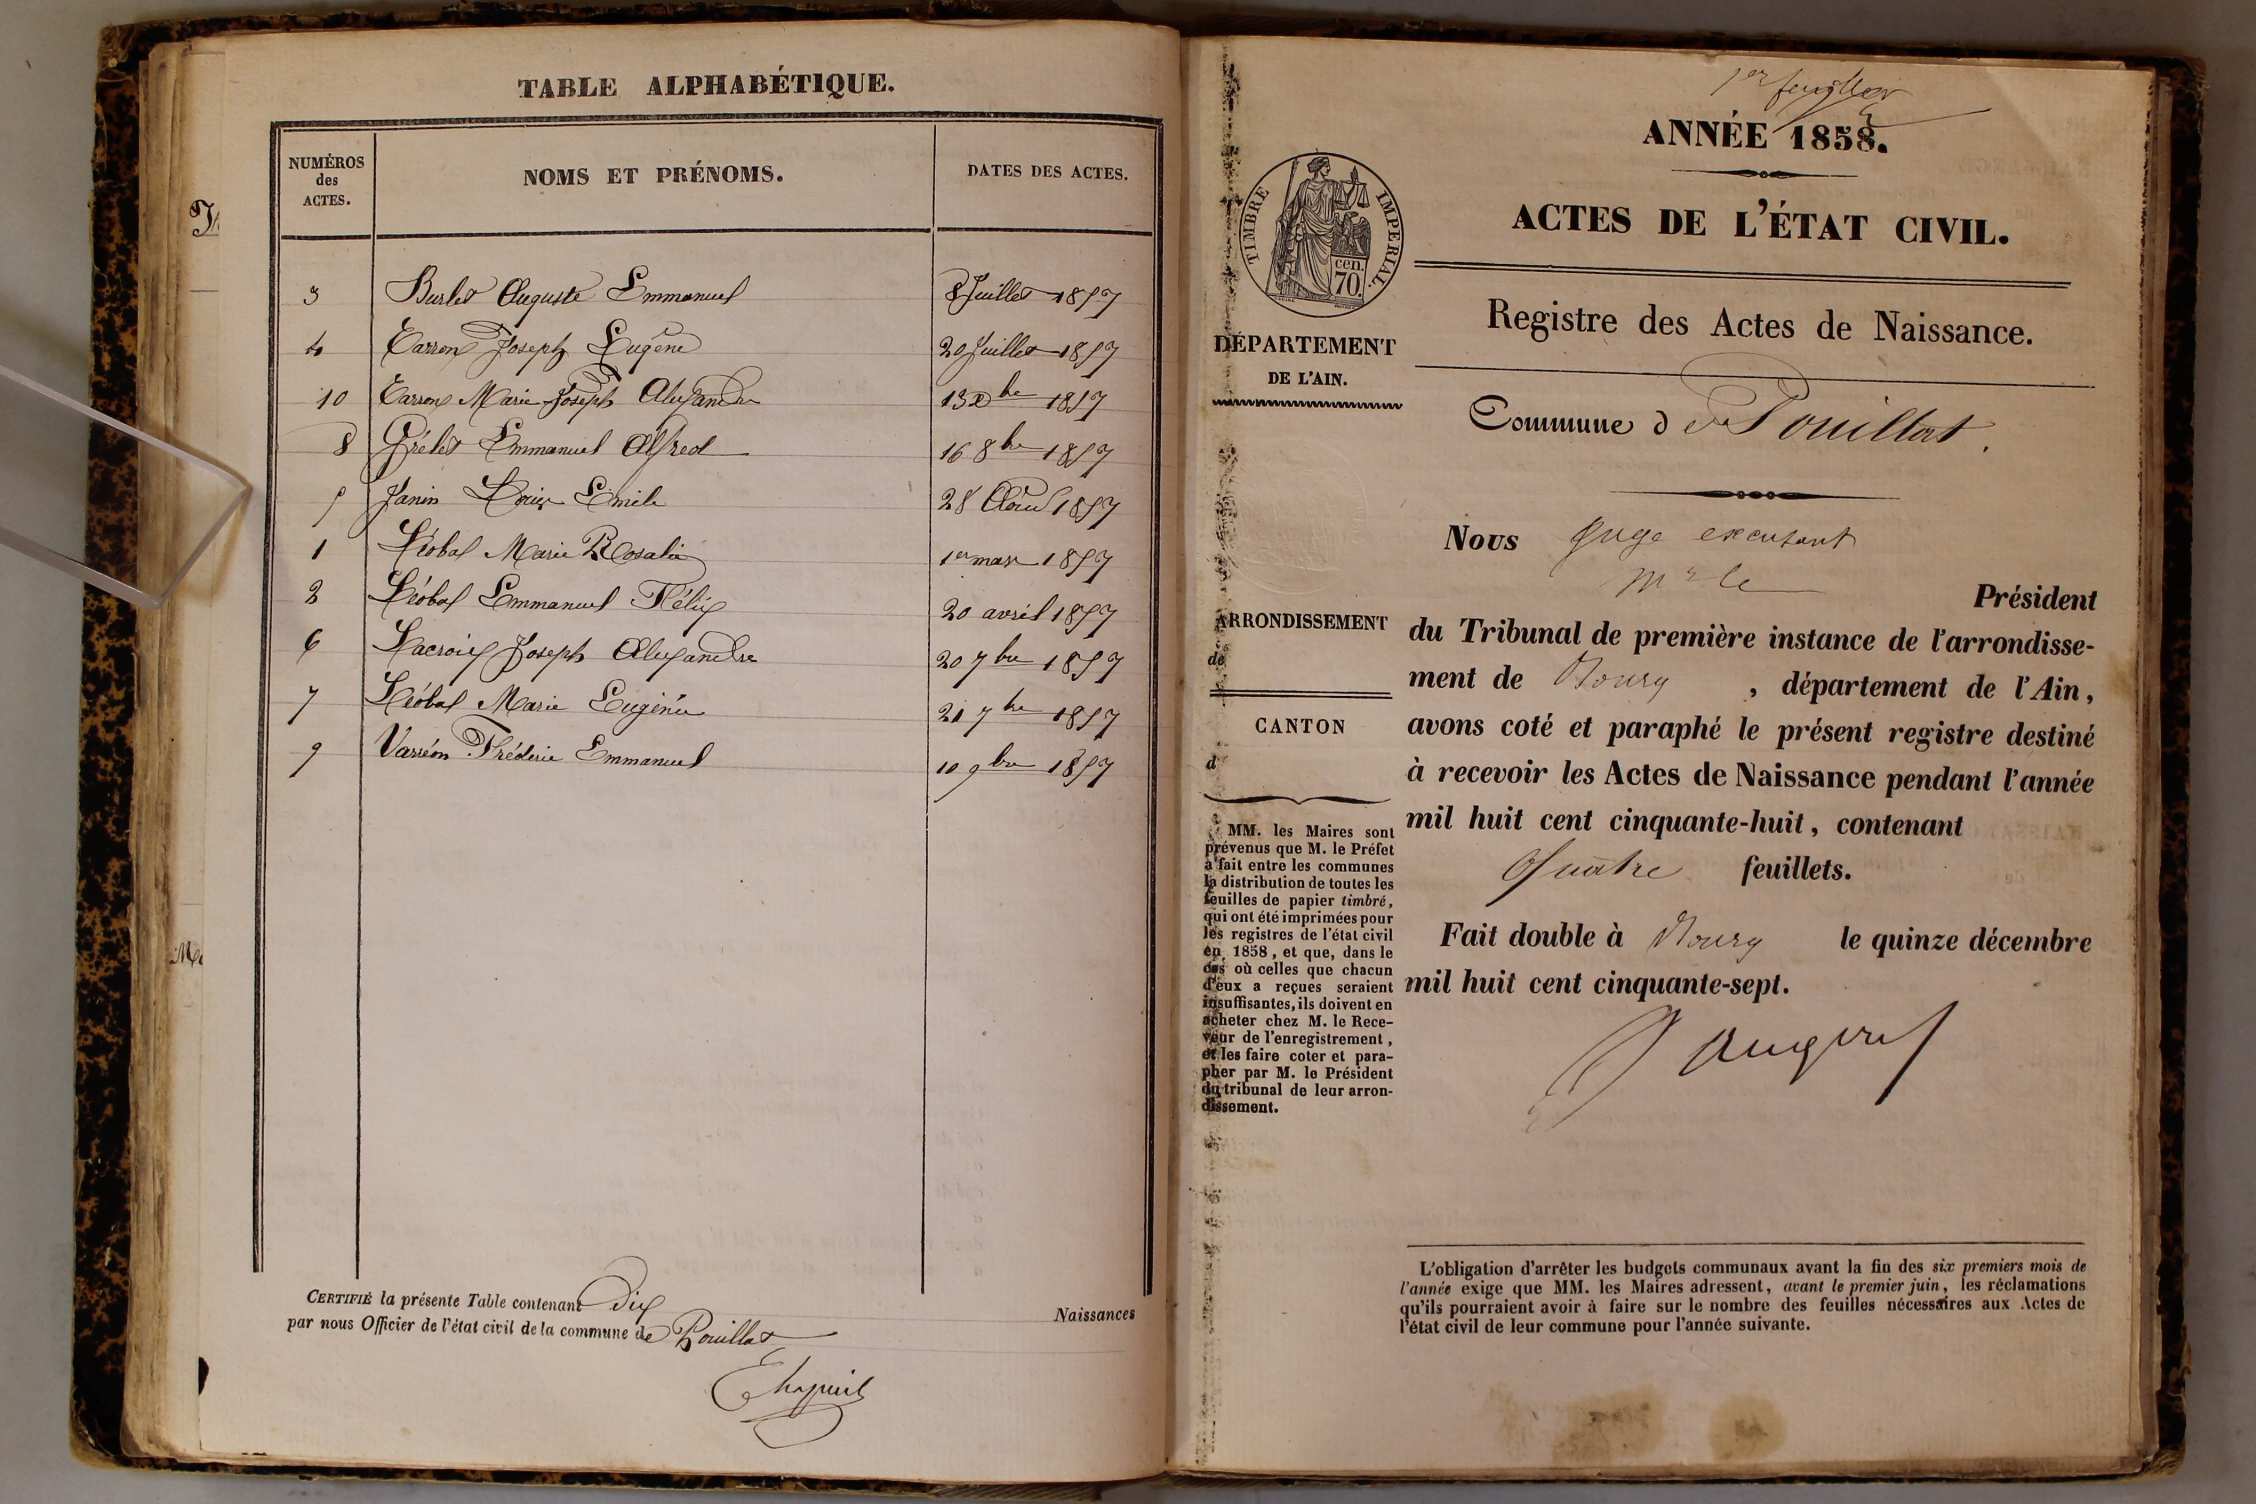 TABLE ALPHABÉTIQUE.
NUMÉROS des ACTES. NOMS ET PRÉNOMS. DATES DES ACTES.
3 Burlet Auguste Emmanuel 8 Juillet 1857
4 Carron Joseph Eugène 20 Juillet 1857
10 Carron Marie Joseph Alexandre 13 Xbre 1857
8 Grélet Emmanuel Alfred 16 8bre 1857
5 Janin Louis Emile 28 Aout 1857
1 Léobal Marie Rosalie 1er mars 1857
2 Léobal Emmanuel Félix 20 avril 1857
6 Lacroix Joseph Alexandre 20 7bre 1857
7 Léobal Marie Eugénie 21 7bre 1857
9 Varréon Fréderic Emmanuel 10 9bre 1857
CERTIFIÉ la présente Table contenant dix Naissances
par nous Officier de l'état civil de la commune de Pouillat
1er feuillet
ANNÉE 1858.
ACTES DE L'ÉTAT CIVIL.
TIMBRE IMPERIAL.
cen.
70.
Registre des Actes de Naissance.
DÉPARTEMENT
DE L'AIN.
Commune d e Pouillat
Nous Juge
Mr le
Président
ARRONDISSEMENT
de
du Tribunal de première instance de l'arrondisse-
ment de Bourg, département de l'Ain,
CANTON
d
avons coté et paraphé le présent registre destiné
à recevoir les Actes de Naissance pendant l'année
mil huit cent cinquante-huit, contenant
Quatre feuillets.
Fait double à Bourg le quinze décembre
mil huit cent cinquante-sept.
MM. les Maires sont
prévenus que M. le Préfet
a fait entre les communes
la distribution de toutes les
feuilles de papier timbré,
qui ont été imprimées pour
les registres de l'état civil
en 1858, et que, dans le
cas où celles que chacun
d'eux a reçues seraient
insuffisantes, ils doivent en
acheter chez M. le Rece-
veur de l'enregistrement,
et les faire coter et para-
pher par M. le Président
du tribunal de leur arron-
dissement.
L'obligation d'arrêter les budgets communaux avant la fin des six premiers mois de
l'année exige que MM. les Maires adressent, avant le premier juin, les réclamations
qu'ils pourraient avoir à faire sur le nombre des feuilles nécessaires aux Actes de
l'état civil de leur commune pour l'année suivante.